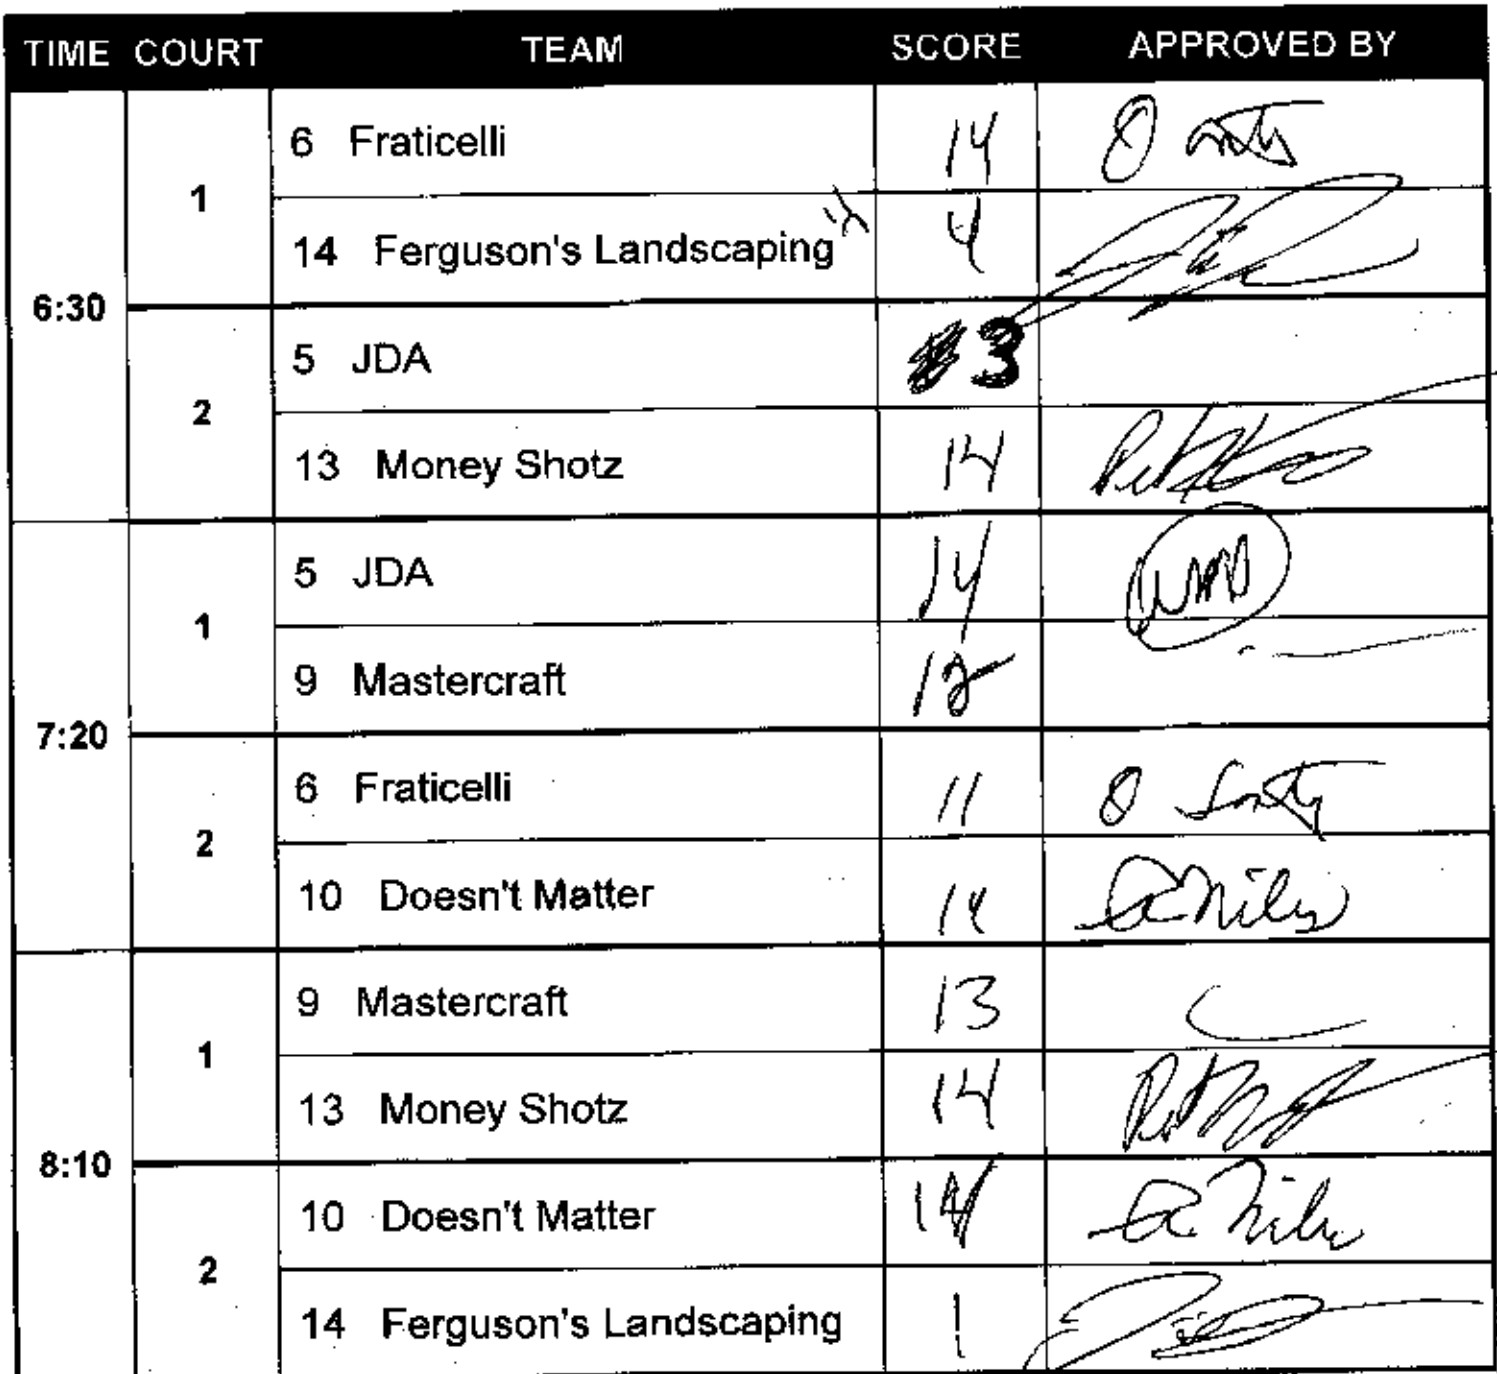 TIME COURT TEAM SCORE APPROVED BY
6:30
1
6 Fraticelli 14
14 Ferguson's Landscaping 4 4
2
5 JDA 3
13 Money Shotz 14
7:20
1
5 JDA 14
9 Mastercraft 12
2
6 Fraticelli 11
10 Doesn't Matter 14
8:10
1
9 Mastercraft 13
13 Money Shotz 14
2
10 Doesn't Matter 14
14 Ferguson's Landscaping 1